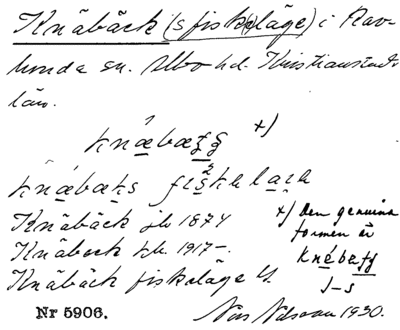 Knäbäck (s fisk(e)läge) i Rav-
lunda sn. Albo hd. Kristianstads
län.
knæbæʒʒ x)
knæbæks fiskelaie
Knäbäck jb 1874
Knäback kb. 1917-.
Knäbäck fiskeläge
x) Den genuina
formen är
knæbæʒʒ
Nr 5906.
Nils Nilsson 1930.